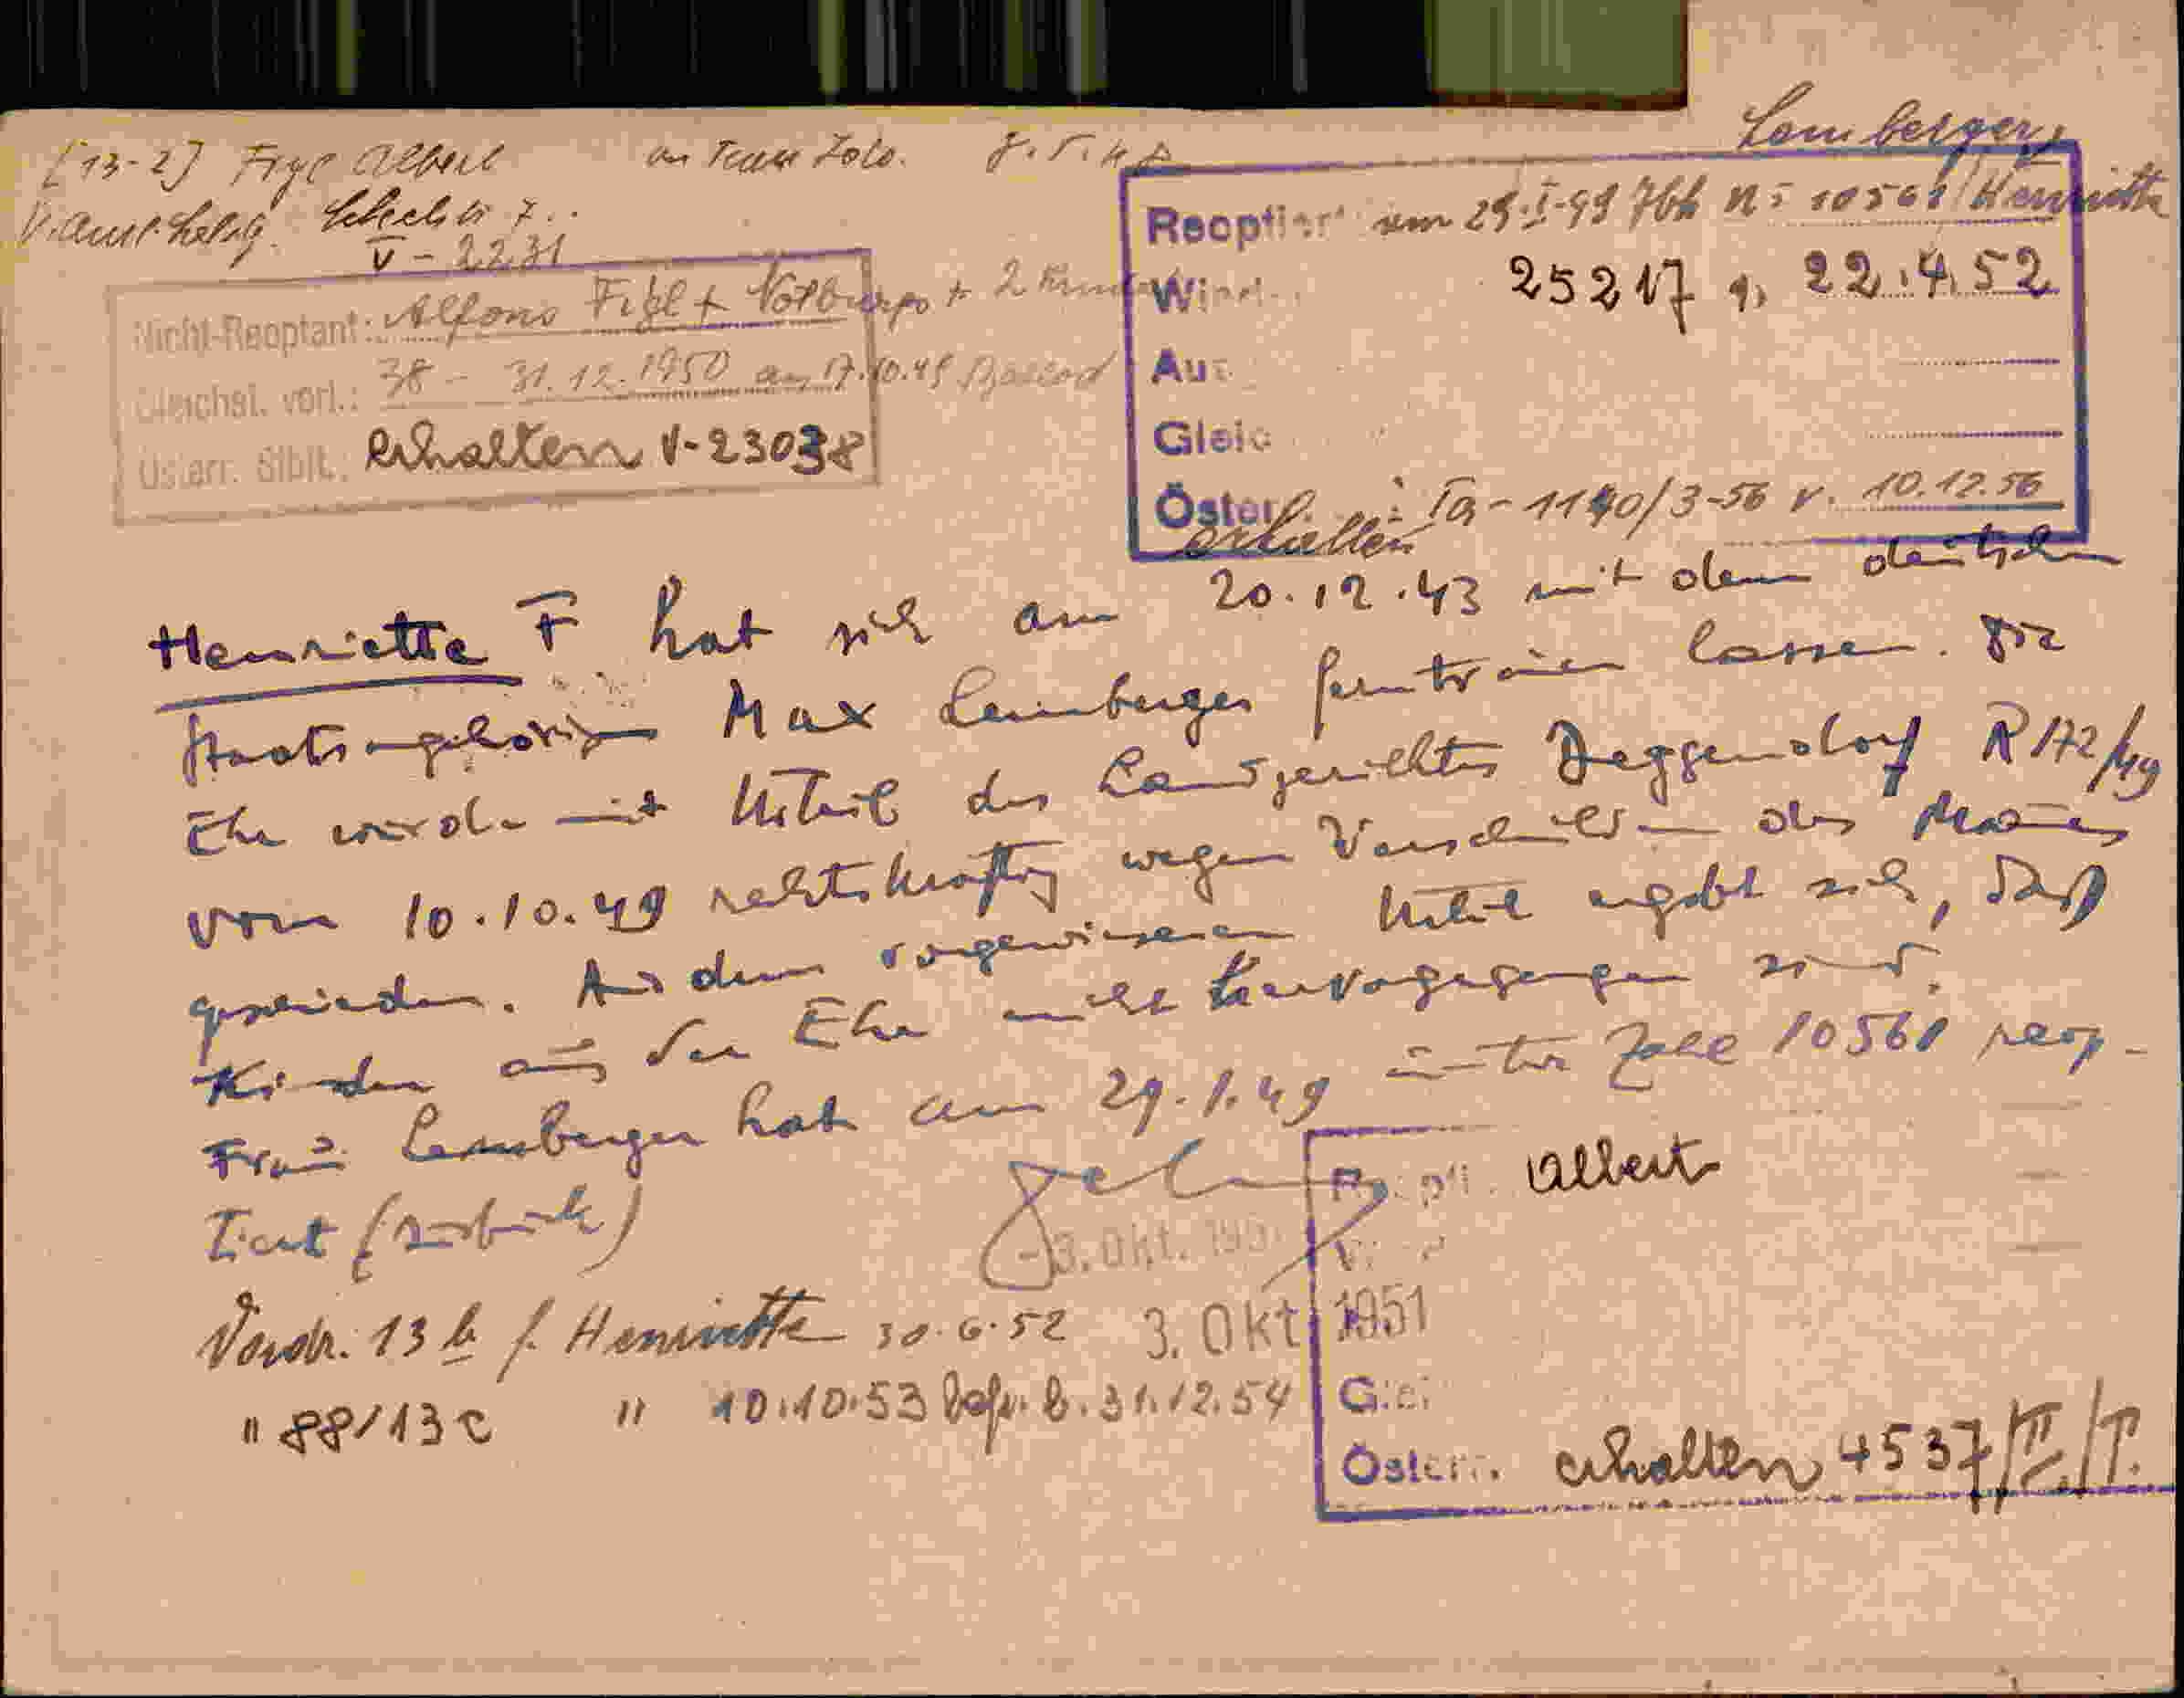 Lemberger,
[13-2] Figl Albert an Team Zolo. 7.5.48
V-2231
Reoptiert am 29.I.49 Zbl N= 10561 Henriette
Wi 25217 v. 22.4.52
Aus
Gleic
Österr. erhalten Ia-1140/3-56 v. 10.12.56
Nicht-Reoptant: Alfons Figl + Notburga + 2 Kinder
Gleichst. vorl.: 38 - 31.12.1950 am 17.10.49
Österr. Stbft. erhalten V-23038
Henriette F hat sich am 20.12.43 mit dem deutschen
Staatsangehörigen Max Lemberger ferntrauen lassen. Die
Ehe wurde mit Urteil des Landgerichtes Deggendorf R 172/49
vom 10.10.49 rechtskräftig wegen Verschulden des Mannes
geschieden. Aus dem vorgewiesenen Urteil ergibt sich, daß
Kinder aus der Ehe nicht hervorgegangen sind.
Frau Lemberger hat am 29.1.49 unter Zahl 10561 reop-
tiert
-3. Okt. 195
Vordr. 13 b f. Henriette 30.6.52
3. Okt 1951
" 88/13 c " 10.10.53 befr. b. 31.12.54
Reopti. Albert
Wi
Glei
Österr. erhalten 4537/II/T.